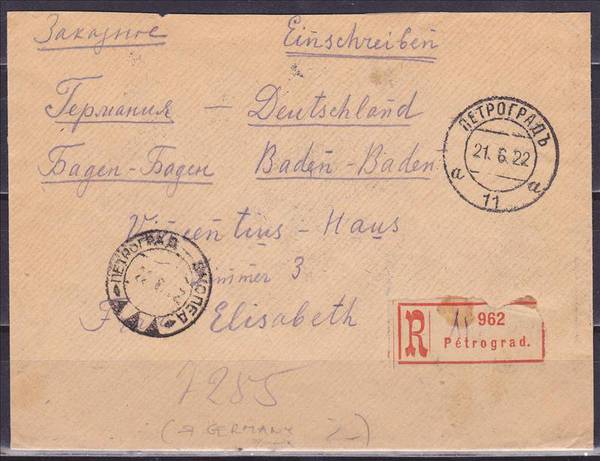 Заказное Einschreiben
Германия — Deutschland
Баден-Баден Baden-Baden
Vincentius-Haus
Zimmer 3
Elisabeth
ПЕТРОГРАДЪ
21.6.22
а а
11
ПЕТРОГРАД ЭКСПЕД
R 962
Pétrograd.
7255
GERMANY